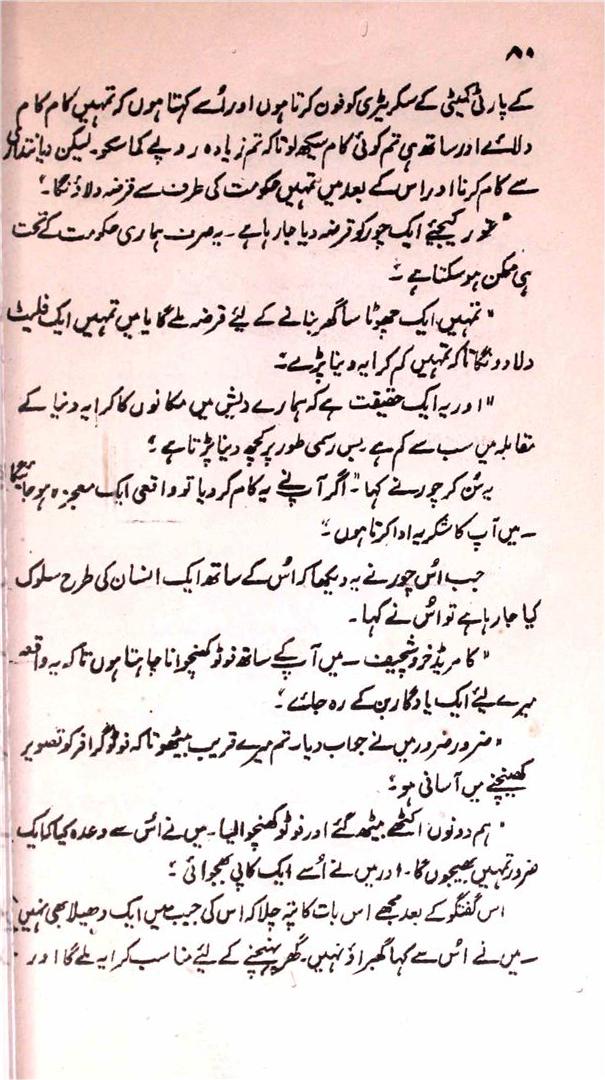 ۸۰
کے پارٹی کمیٹی کے سکریٹری کو فون کرتا ہوں اور اُسے کہتا ہوں کہ تمہیں کام کام
دلائے اور ساتھ ہی تم کوئی کام سیکھ لو تاکہ تم زیادہ روپے کما سکو۔ لیکن دیانتداری
سے کام کرنا اور اس کے بعد میں تمہیں حکومت کی طرف سے قرضہ دلاؤنگا۔"
"غور کیجئے ایک چور کو قرضہ دیا جا رہا ہے۔ یہ صرف ہماری حکومت کے تحت
ہی ممکن ہو سکتا ہے۔"
"تمہیں ایک چھوٹا سا گھر بنانے کے لیئے قرضہ ملے گا یا میں تمہیں ایک فلیٹ
دلا دونگا تاکہ تمہیں کم کرایہ دینا پڑے۔"
"اور یہ ایک حقیقت ہے کہ ہمارے دیش میں مکانوں کا کرایہ دنیا کے
مقابلہ میں سب سے کم ہے بس رسمی طور پر کچھ دینا پڑتا ہے۔"
یہ سُن کر چور نے کہا "اگر آپ نے یہ کام کر دیا تو واقعی ایک معجزہ ہو جائیگا
۔ میں آپ کا شکریہ ادا کرتا ہوں۔"
جب اُس چور نے یہ دیکھا کہ اُس کے ساتھ ایک انسان کی طرح سلوک
کیا جا رہا ہے تو اُس نے کہا۔
"کامریڈ خروشچیف ۔ میں آپ کے ساتھ فوٹو کھنچوانا چاہتا ہوں تاکہ یہ واقعہ
میرے لیئے ایک یادگار بن کے رہ جائے۔"
"ضرور ضرور میں نے جواب دیا۔ تم میرے قریب بیٹھو تاکہ فوٹوگرافر کو تصویر
کھینچنے میں آسانی ہو۔"
"ہم دونوں اکٹھے بیٹھ گئے اور فوٹو کھنچوا لیا۔ میں نے اُس سے وعدہ کیا کہ ایک
ضرور تمہیں بھیجوں گا۔ اور میں نے اُسے ایک کاپی بھجوائی۔"
اس گفتگو کے بعد مجھے اس بات کا پتہ چلا کہ اس کی جیب میں ایک دھیلا بھی نہیں
۔ میں نے اُس سے کہا گھبراؤ نہیں۔ گھر پہنچنے کے لیئے مناسب کرایہ ملے گا اور